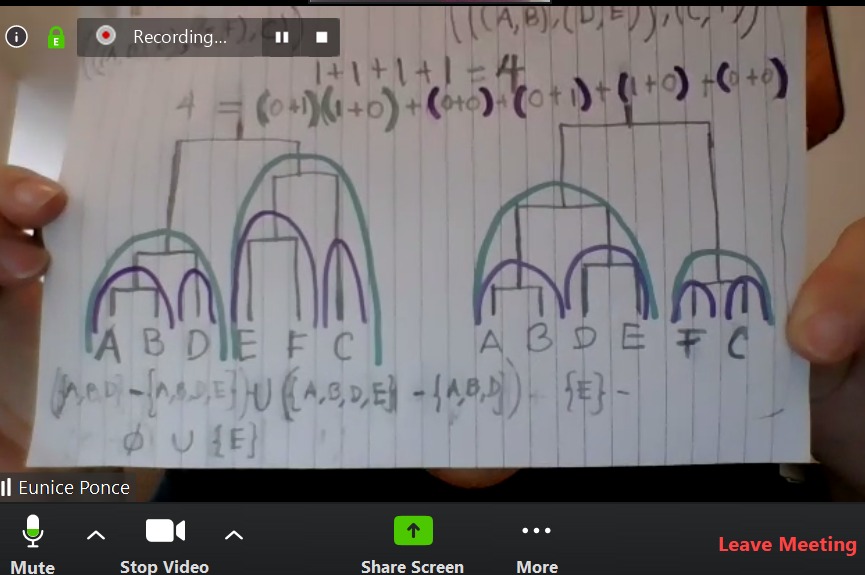 Recording...
(((A,B),(D,E)),(C,F))
1+1+1+1=4
4 = (0+1)(1+0)+(0+0)+(0+1)+(1+0)+(0+0)
A B D E F C A B D E F C
({A,B,D} - {A,B,D,E}) ∪ ({A,B,D,E} - {A,B,D}) {E} -
∅ ∪ {E}
Eunice Ponce
Mute Stop Video Share Screen More Leave Meeting